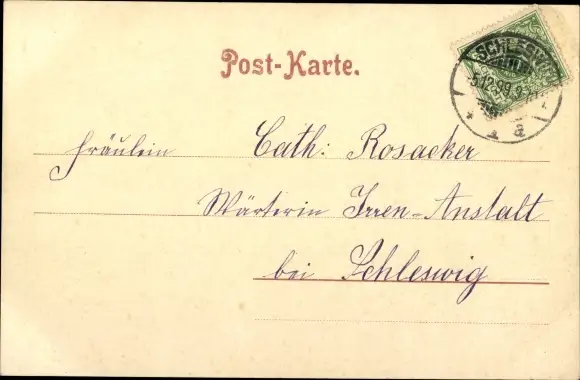 Post-Karte.
SCHLESWIG
5.12.99.9
* 1 a *
Fräulein Cath: Rosacker
Wärterin Irren-Anstalt
bei Schleswig